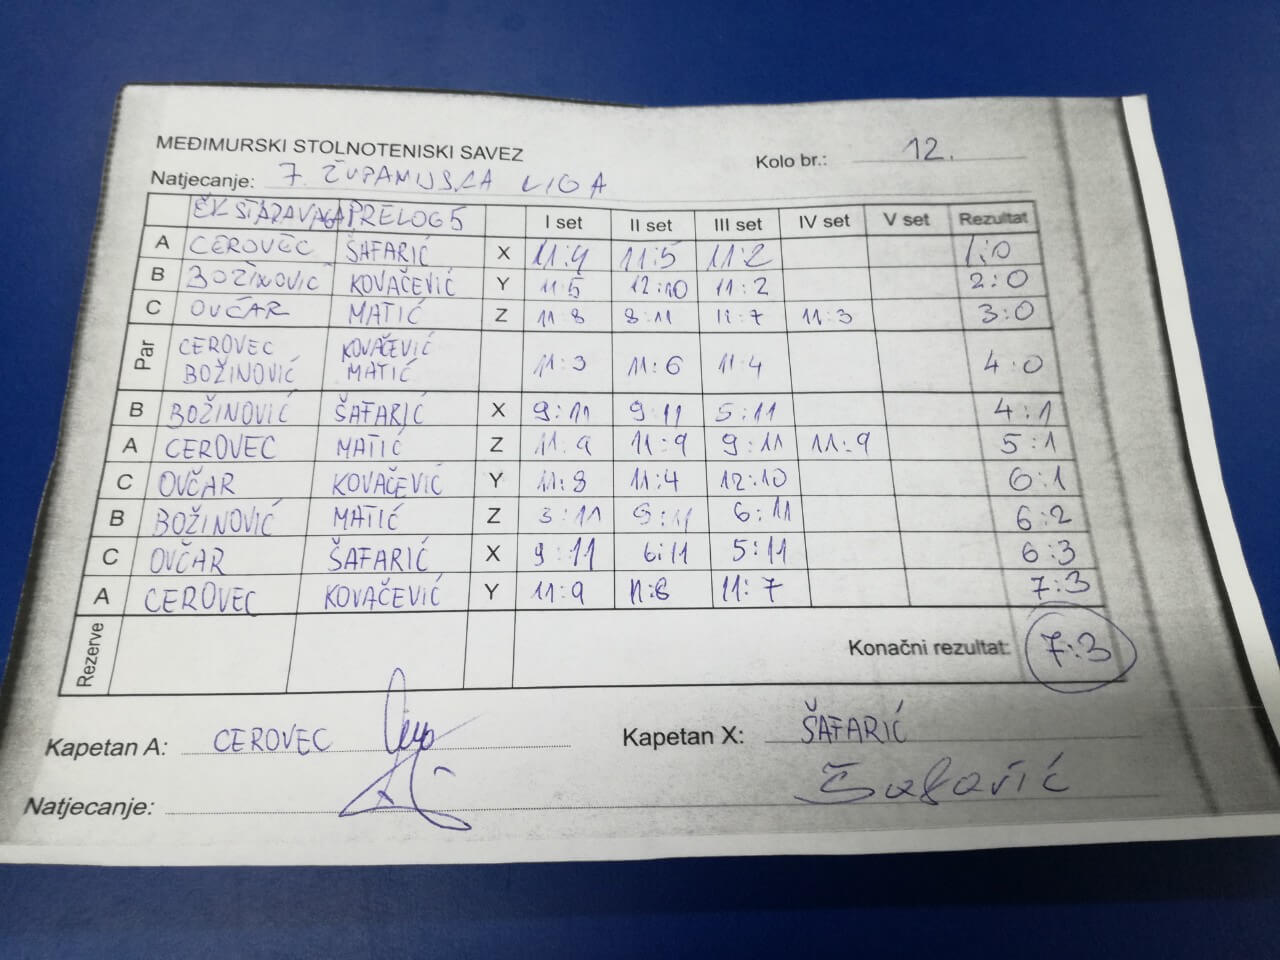 MEĐIMURSKI STOLNOTENISKI SAVEZ
Kolo br.: 12.
Natjecanje: 7. ŽUPANIJSKA LIGA
PRELOG 5 I set II set III set IV set V set Rezultat
A CEROVEC ŠAFARIĆ X 11:4 11:5 11:2 1:0
B BOŽINOVIĆ KOVAČEVIĆ Y 11:5 12:10 11:2 2:0
C OVČAR MATIĆ Z 11:8 8:11 11:7 11:3 3:0
Par CEROVEC KOVAČEVIĆ 11:3 11:6 11:4 4:0
BOŽINOVIĆ MATIĆ
B BOŽINOVIĆ ŠAFARIĆ X 9:11 9:11 5:11 4:1
A CEROVEC MATIĆ Z 11:9 11:9 9:11 11:9 5:1
C OVČAR KOVAČEVIĆ Y 11:8 11:4 12:10 6:1
B BOŽINOVIĆ MATIĆ Z 3:11 9:11 6:11 6:2
C OVČAR ŠAFARIĆ X 9:11 6:11 5:11 6:3
A CEROVEC KOVAČEVIĆ Y 11:9 11:7 7:3
Rezerve Konačni rezultat: 7:3
Kapetan A: CEROVEC Kapetan X: ŠAFARIĆ
Šafarić
Natjecanje: